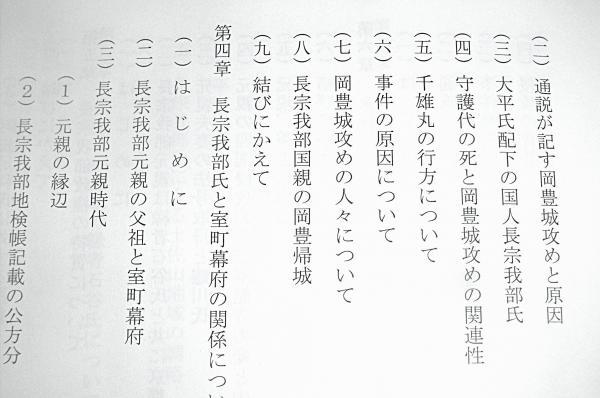 (二) 通説が記す岡豊城攻めと原因
(三) 大平氏配下の国人長宗我部氏
(四) 守護代の死と岡豊城攻めの関連性
(五) 千雄丸の行方について
(六) 事件の原因について
(七) 岡豊城攻めの人々について
(八) 長宗我部国親の岡豊帰城
(九) 結びにかえて
第四章 長宗我部氏と室町幕府の関係につい
(一) はじめに
(二) 長宗我部元親の父祖と室町幕府
(三) 長宗我部元親時代
(1) 元親の縁辺
(2) 長宗我部地検帳記載の公方分